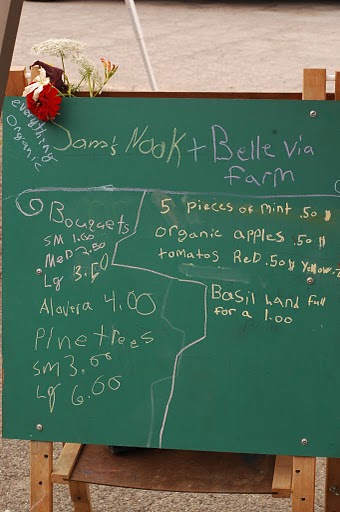 everything
Organic
Sam's Nook + Belle Via
farm
Bouquets
SM 1.00
MeD 2.50
Lg 3.50
Alovera 4.00
Pine trees
SM 3.00
Lg 6.00
5 pieces of mint .50 $
organic apples .50 $
tomatos ReD .50$ Yellow
Basil hand full
for a 1.00